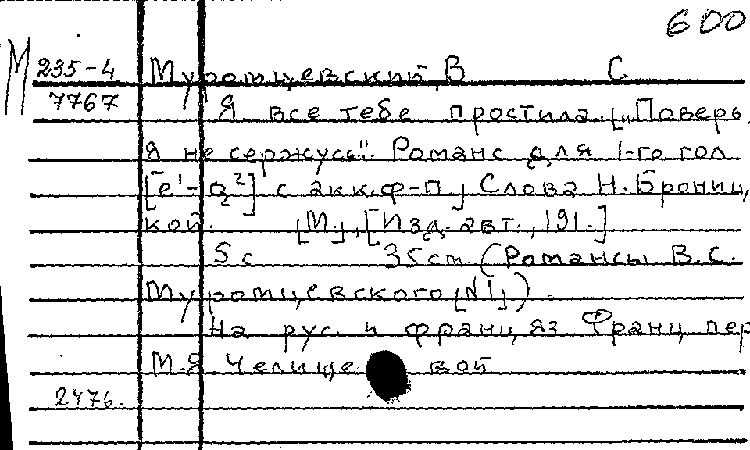 600
М 235-4 Муромцевский, В С
7767 Я все тебе простила. [„Поверь,
я не сержусь". Романс для 1-го гол.
[e¹-a²] с акк. ф-п.] Слова Н. Брониц-
кой. [М.], [Изд. авт., 191.]
5 с 35 см (Романсы В. С.
Муромцевского [№1]).
На рус. и франц. яз. Франц. пер.
М. Я. Челище вой
2476.